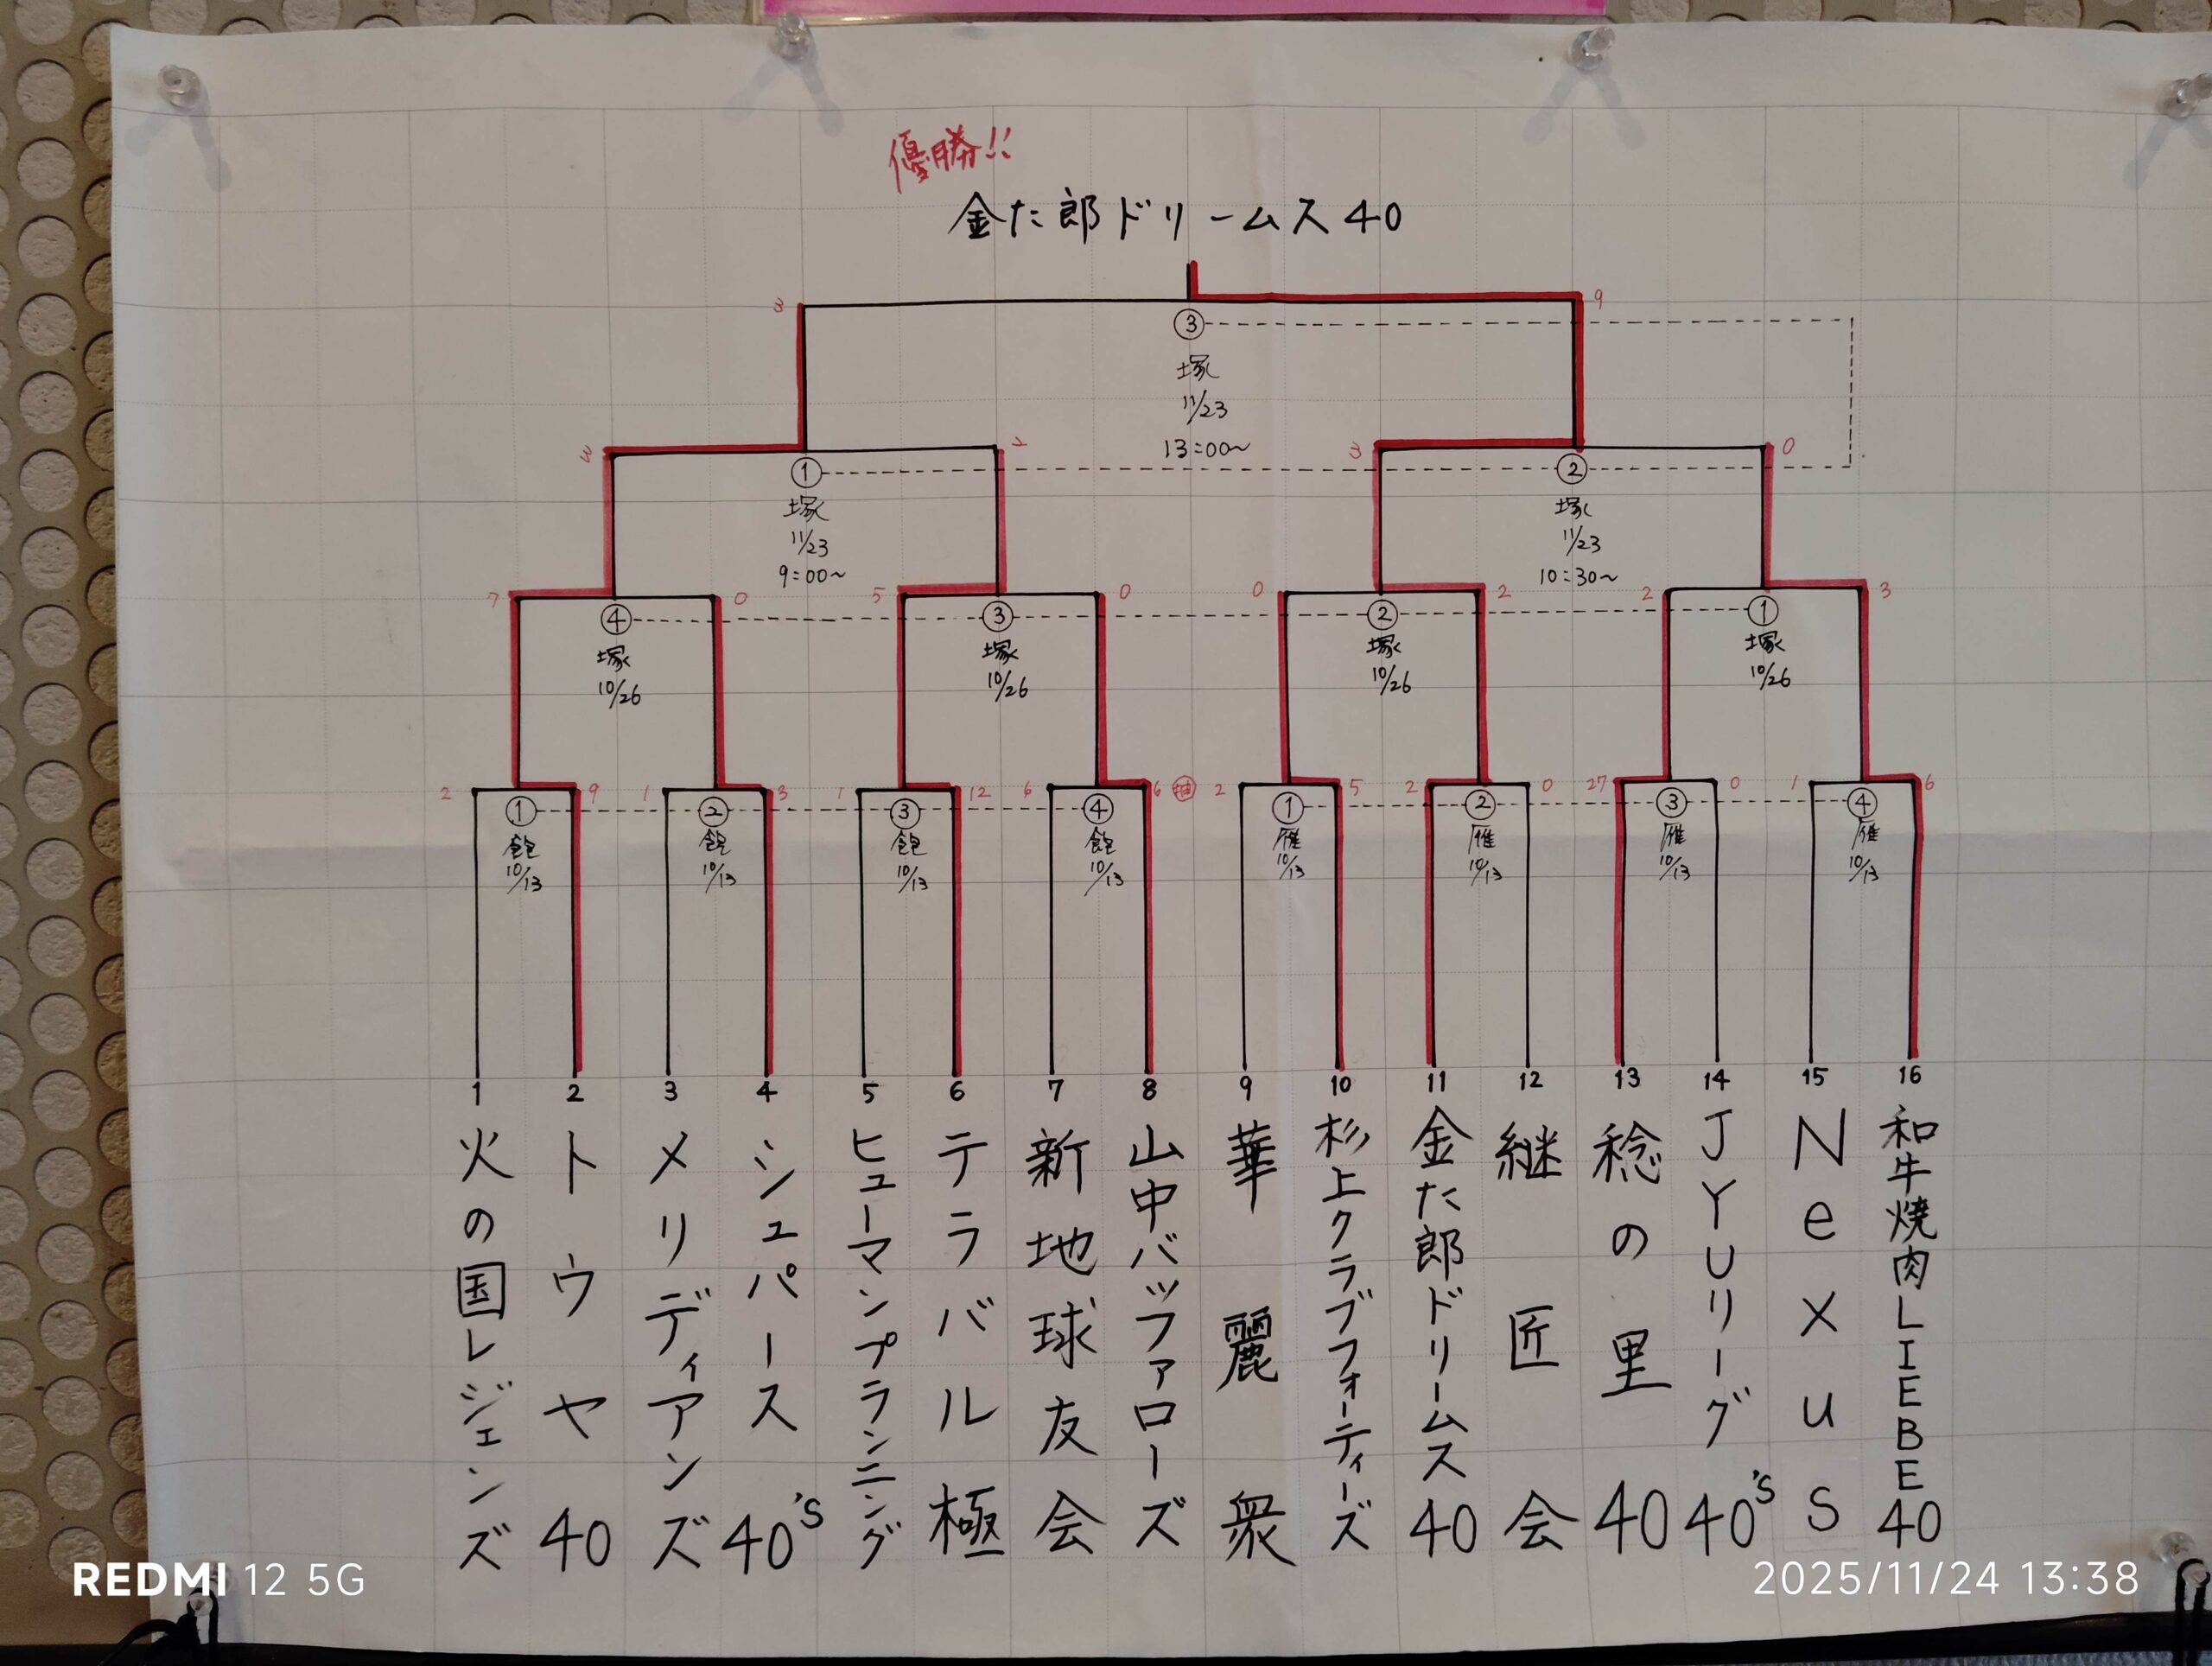 優勝!!
金た郎ドリームス40
3 9
③
塚
11/23
13:00~
3 2 3 0
① ②
塚 塚
11/23 11/23
9:00~ 10:30~
7 0 5 0 0 2 2 3
④ ③ ② ①
塚 塚 塚 塚
10/26 10/26 10/26 10/26
2 9 1 3 1 12 6 6 抽 2 5 2 0 27 0 1 6
① ② ③ ④ ① ② ③ ④
飽 飽 飽 飽 雁 雁 雁 雁
10/13 10/13 10/13 10/13 10/13 10/13 10/13 10/13
1 2 3 4 5 6 7 8 9 10 11 12 13 14 15 16
火の国レジェンズ
トウヤ40
メリディアンズ
シュパース40's
ヒューマンプランニング
テラバル極
新地球友会
山中バッファローズ
華麗衆
杉上クラブフォーティーズ
金た郎ドリームス40
継匠会
稔の里40
JYUリーグ40's
Nexus
和牛焼肉LIEBE40
REDMI 12 5G
2025/11/24 13:38